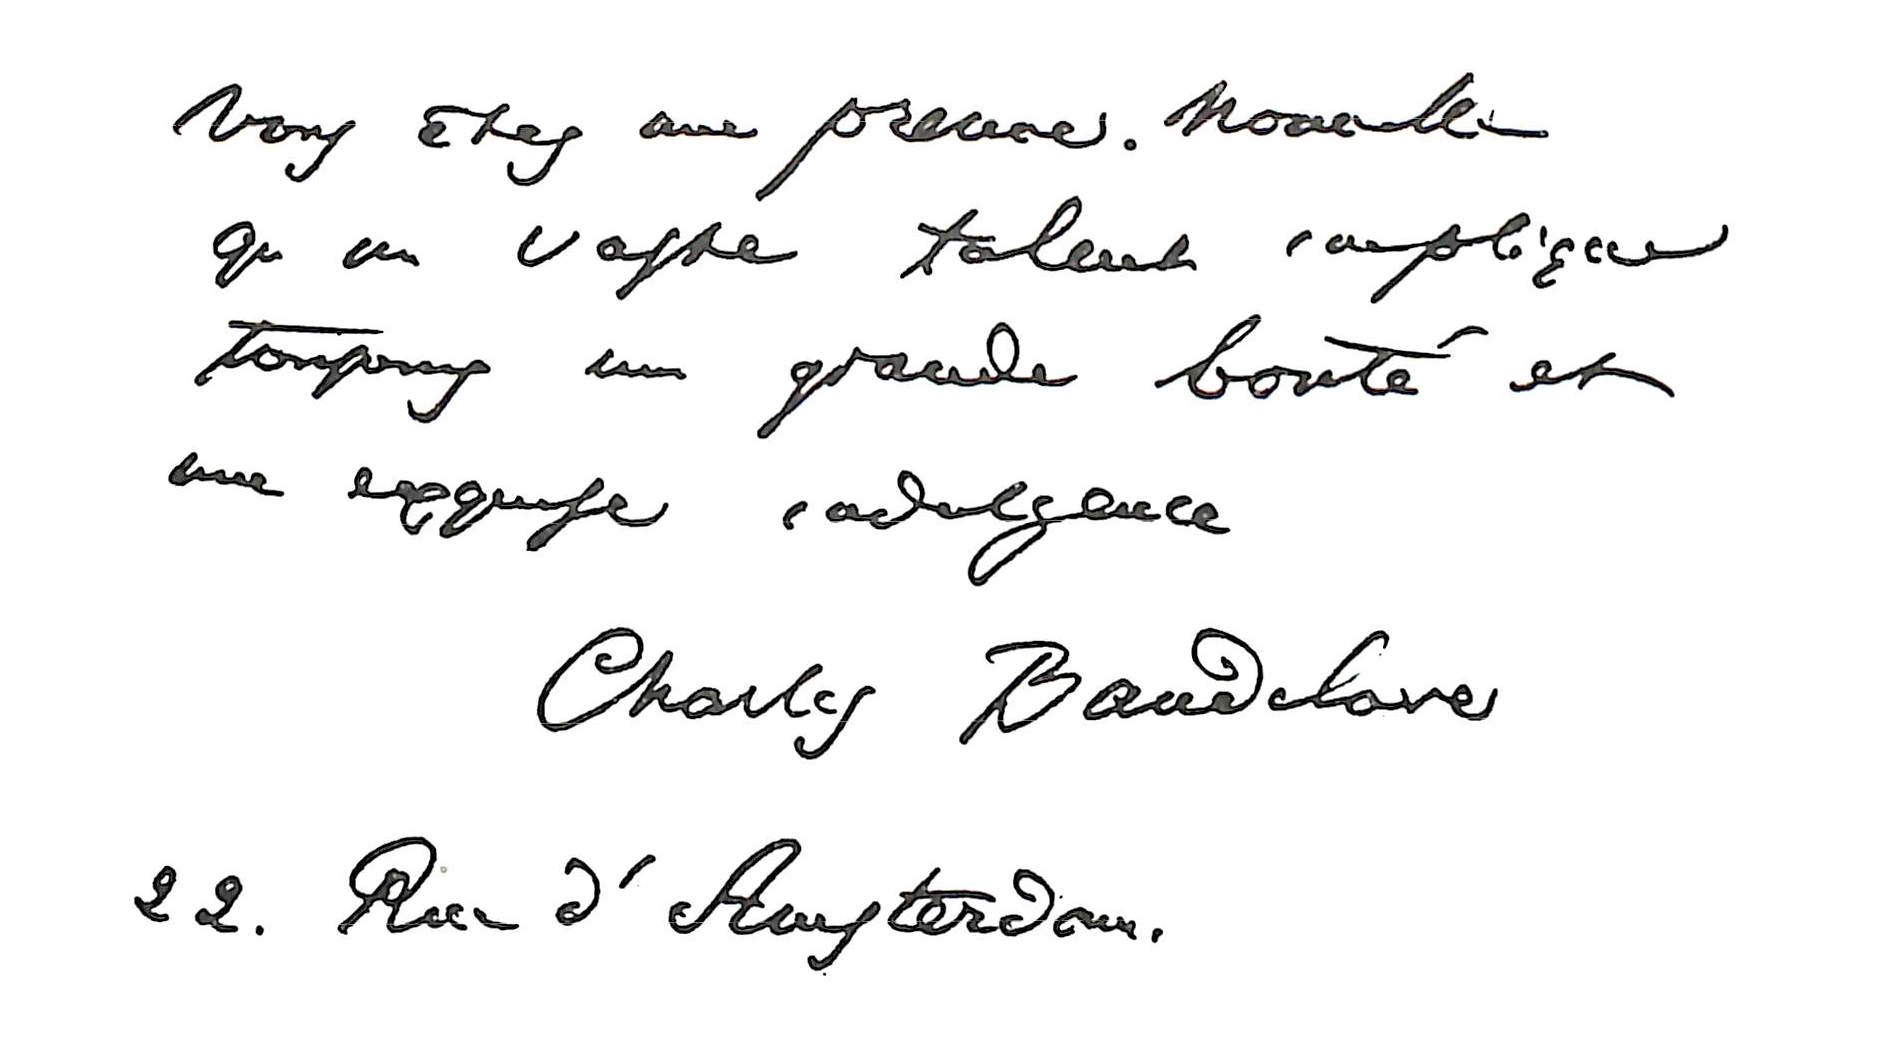 Vous êtes une preuve. Nouvelle
qu'un vaste talent implique
toujours une grande bonté et
une exquise indulgence
Charles Baudelaire
22. Rue d'Amsterdam.